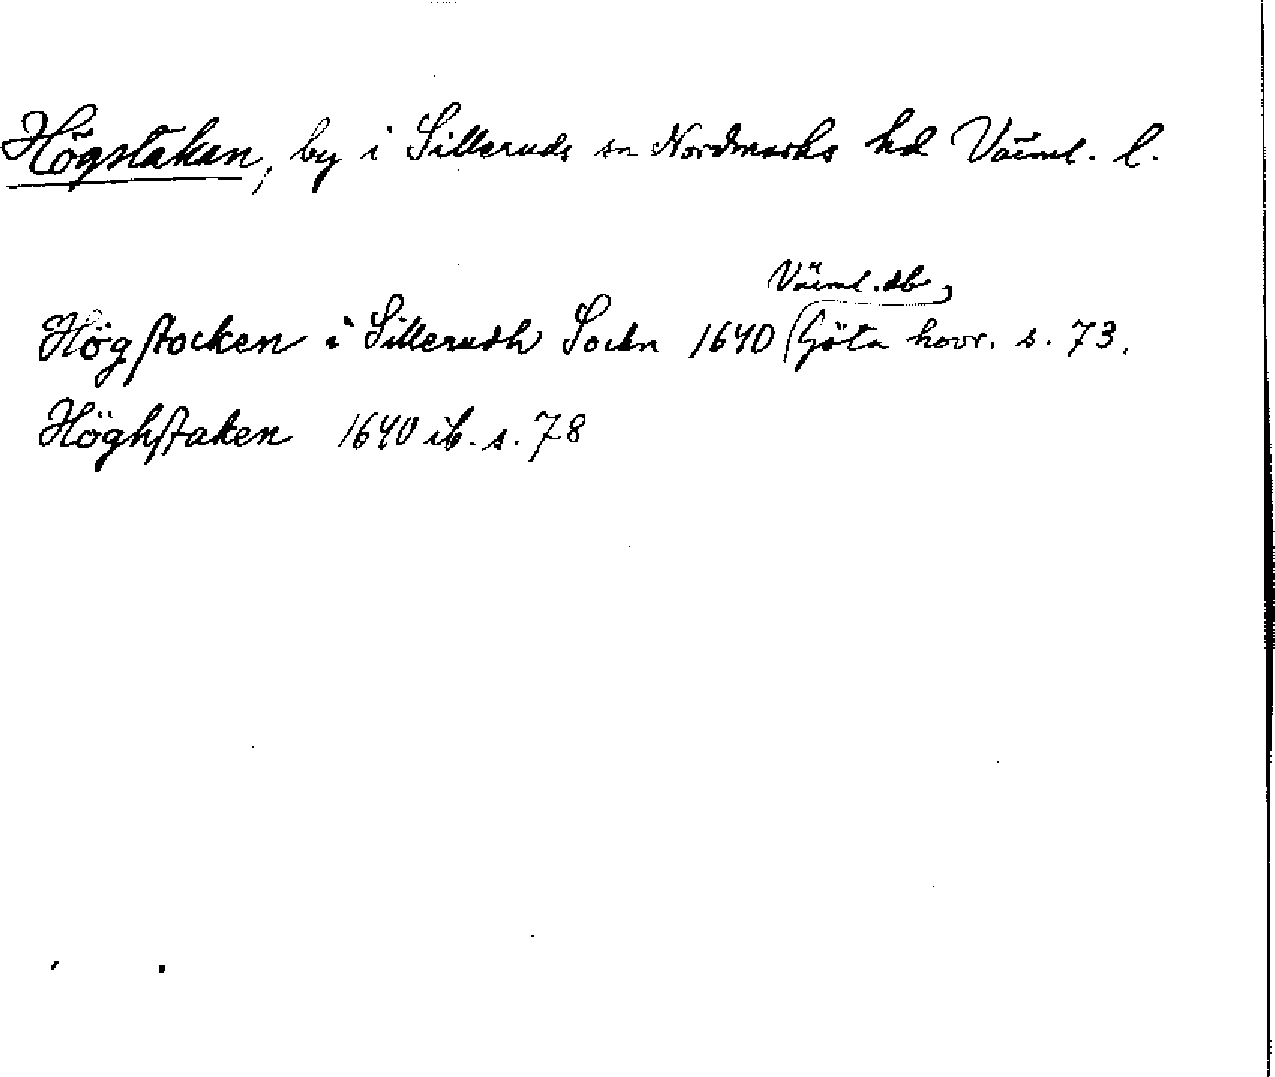 Högstakan, by i Silleruds sn Nordmarks hd Värml. l.
Värml. db
Högstocken i Sillerudh Sockn 1640 (Göta hovr. s. 73.
Höghstaken 1640 ib. s. 78